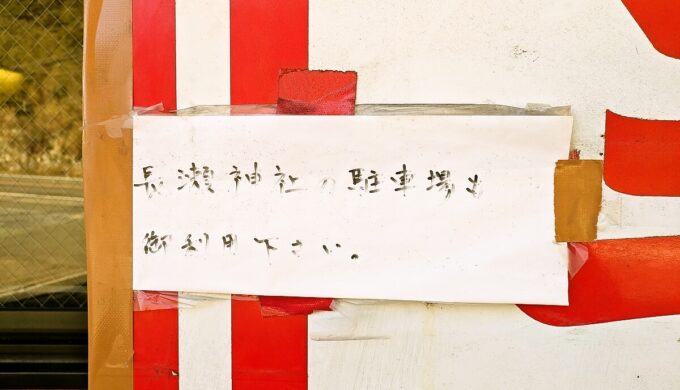 長瀬神社の駐車場も
御利用下さい。